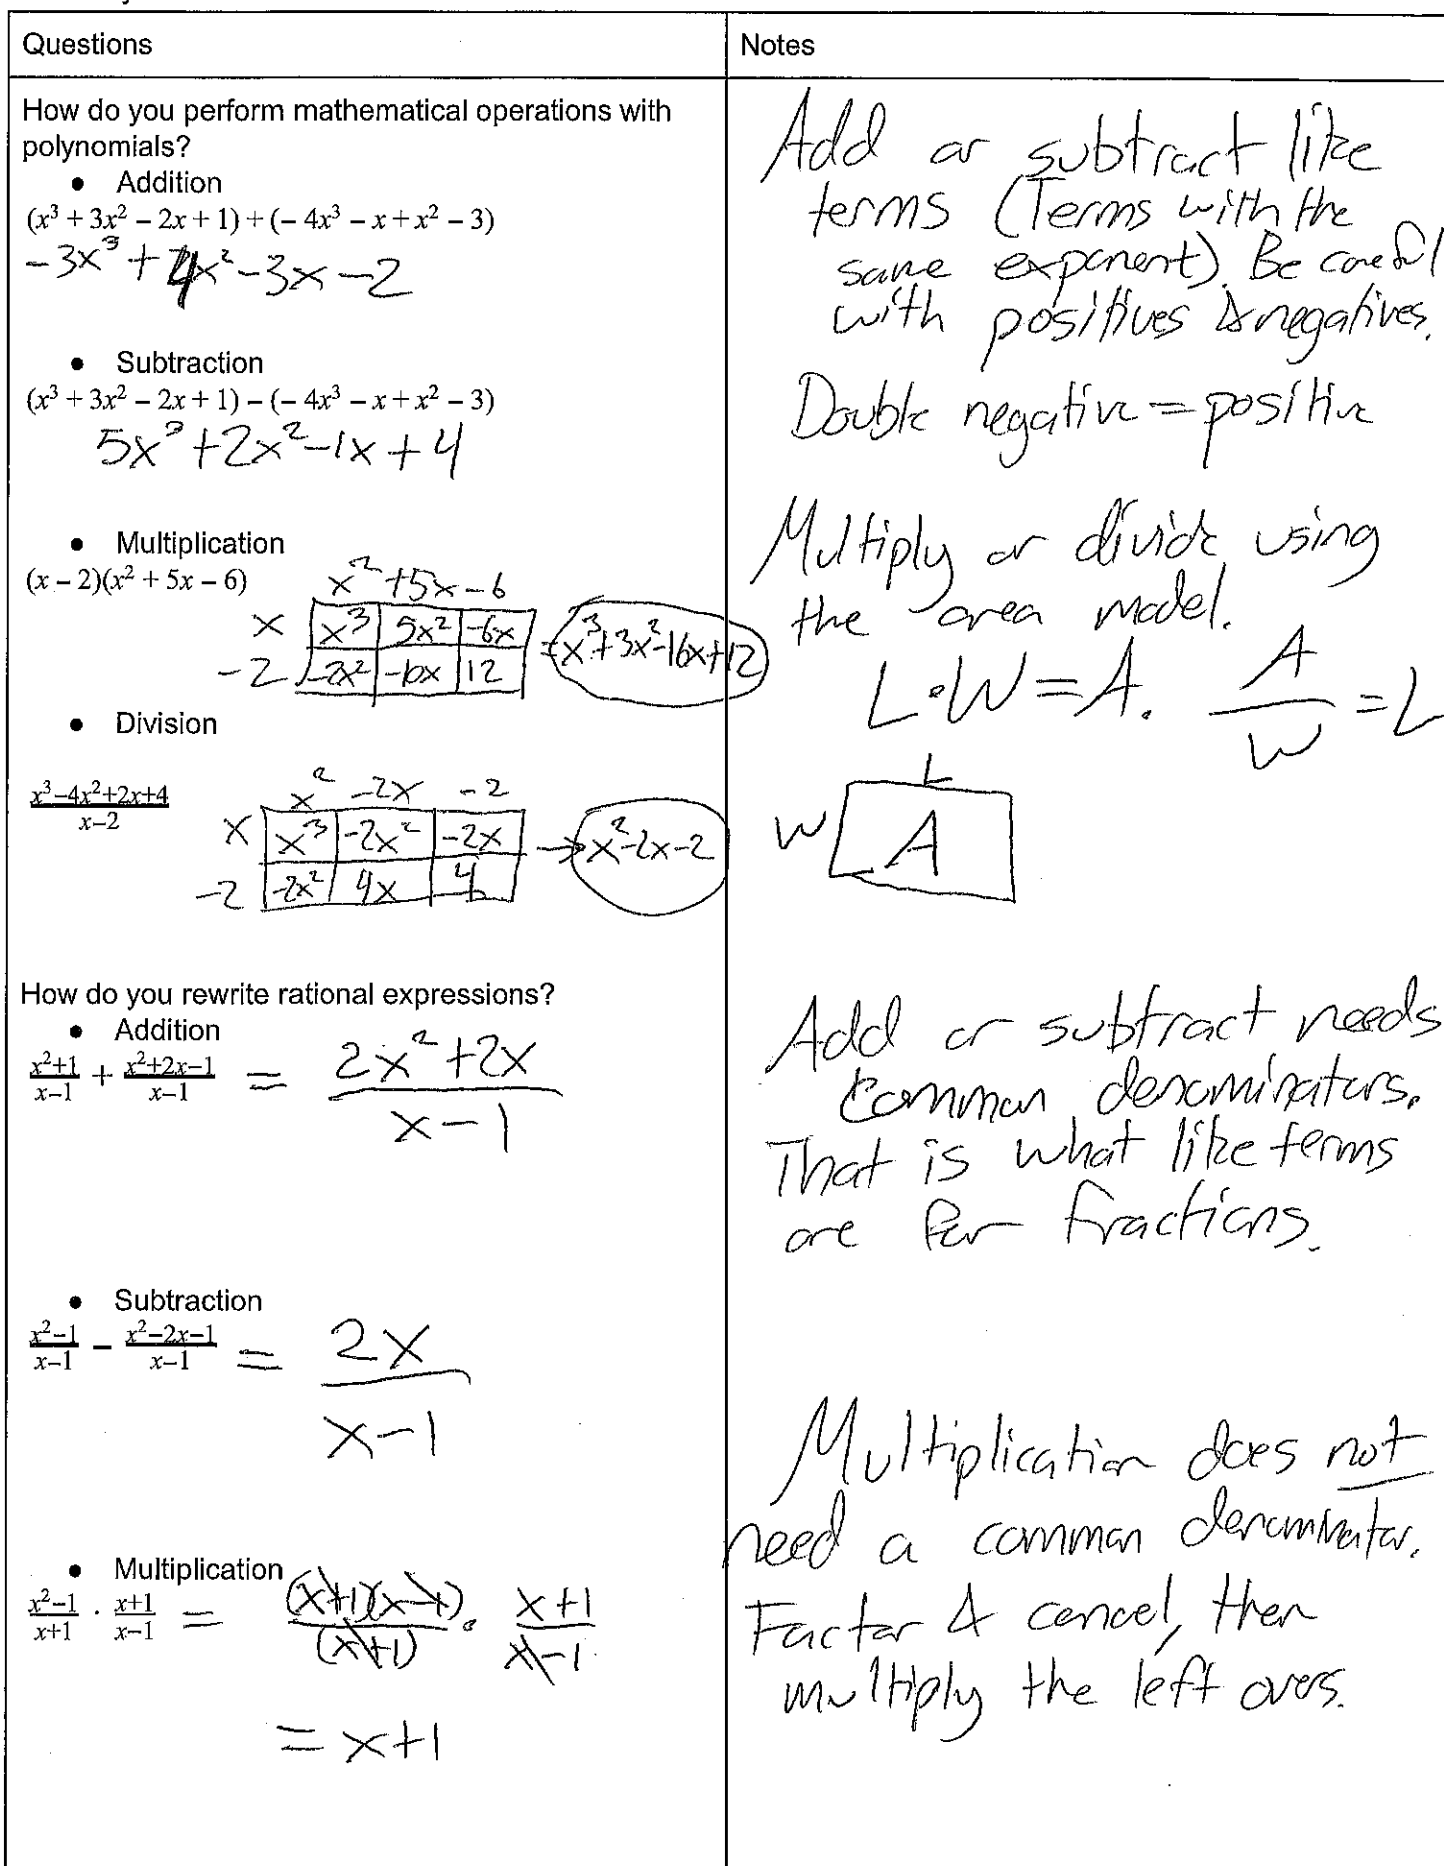 Questions
Notes
How do you perform mathematical operations with
polynomials?
• Addition
(x³ + 3x² – 2x + 1) + (– 4x³ – x + x² – 3)
-3x³ + 4x² - 3x - 2
• Subtraction
(x³ + 3x² – 2x + 1) – (– 4x³ – x + x² – 3)
5x³ + 2x² - 1x + 4
• Multiplication
(x – 2)(x² + 5x – 6)
x² + 5x - 6
x x³ 5x² -6x
-2 -2x² -10x 12
= x³ + 3x² - 16x + 12
• Division
x³–4x²+2x+4
x–2
x² -2x -2
x x³ -2x² -2x
-2 -2x² 4x 4
→ x² - 2x - 2
How do you rewrite rational expressions?
• Addition
x²+1/x–1 + x²+2x–1/x–1 = 2x² + 2x/x - 1
• Subtraction
x²–1/x–1 – x²–2x–1/x–1 = 2x/x - 1
• Multiplication
x²–1/x+1 · x+1/x–1 = (x+1)(x-1)/(x+1) · x+1/x-1
= x+1
Add or subtract like
terms (Terms with the
same exponent). Be careful
with positives & negatives.
Double negative = positive
Multiply or divide using
the area model.
L·W = A. A/W = L
L
W A
Add or subtract needs
common denominators.
That is what like terms
are for fractions.
Multiplication does not
need a common denominator.
Factor & cancel, then
multiply the left overs.